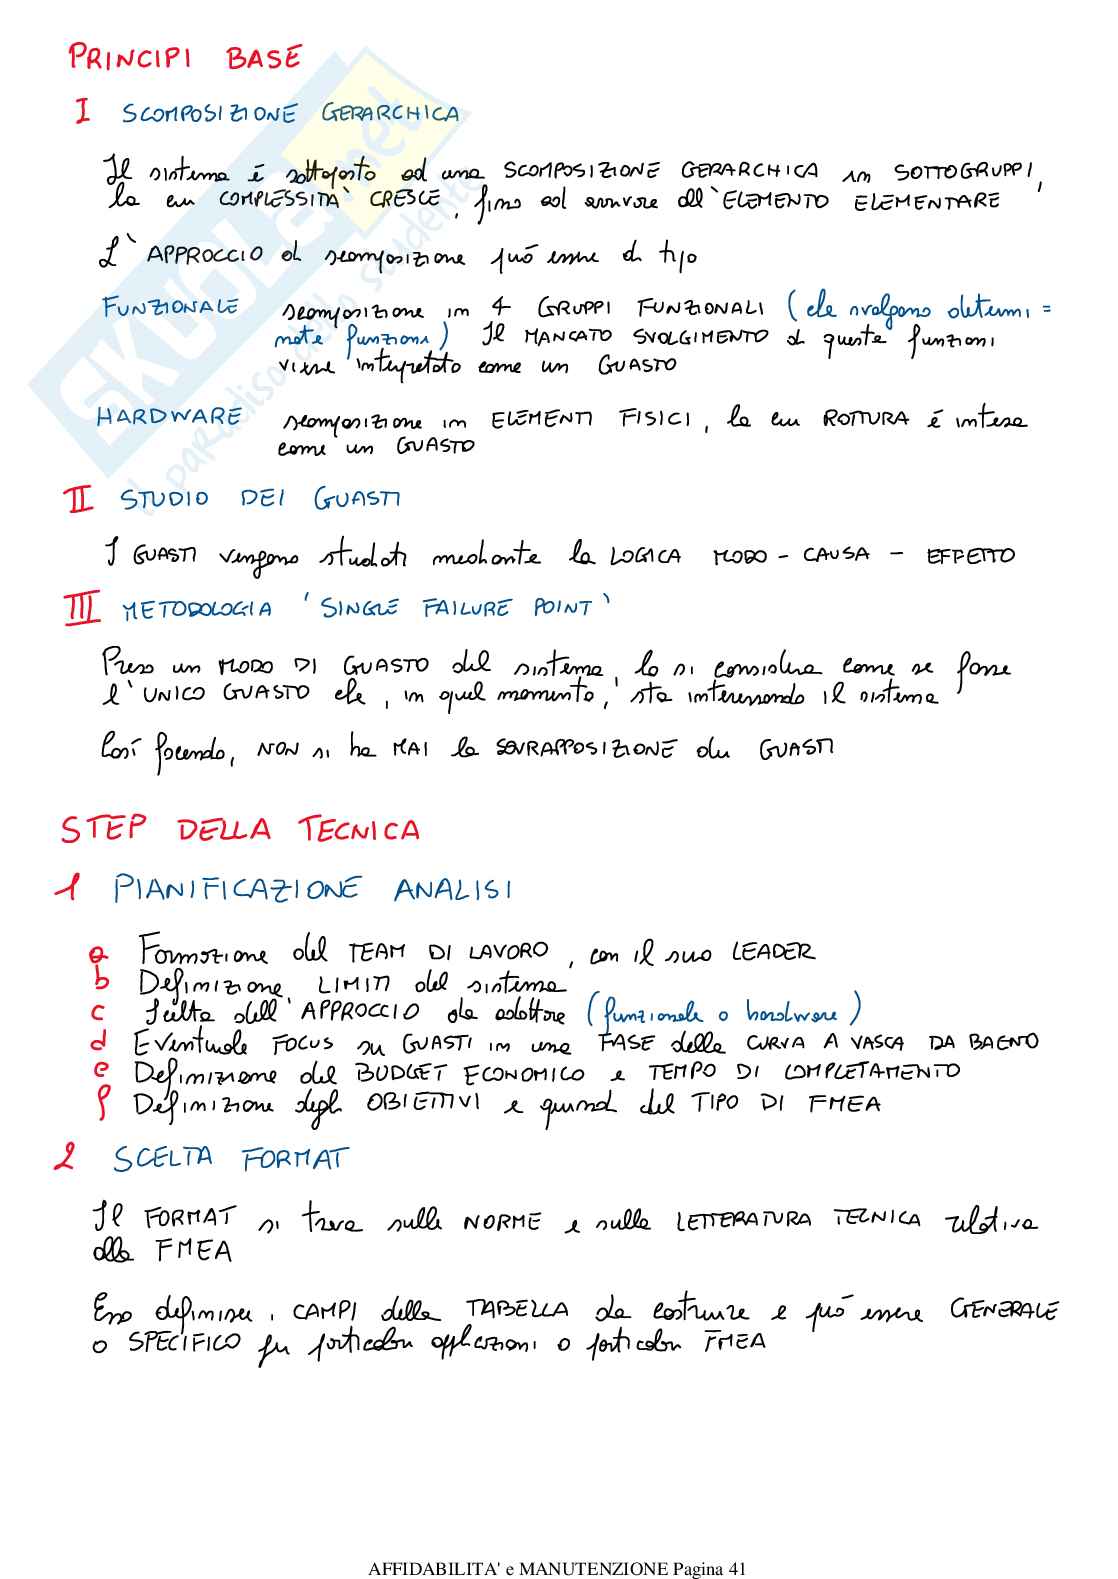 PRINCIPI BASE
I SCOMPOSIZIONE GERARCHICA
Il sistema è sottoposto ad una SCOMPOSIZIONE GERARCHICA in SOTTOGRUPPI,
la cui COMPLESSITA' CRESCE, fino ad arrivare all'ELEMENTO ELEMENTARE
L'APPROCCIO di scomposizione può essere di tipo
FUNZIONALE scomposizione in 4 GRUPPI FUNZIONALI (che svolgono determi=
nate funzioni) Il MANCATO SVOLGIMENTO di queste funzioni
viene interpretato come un GUASTO
HARDWARE scomposizione in ELEMENTI FISICI, la cui ROTTURA è intesa
come un GUASTO
II STUDIO DEI GUASTI
I GUASTI vengono studiati mediante la LOGICA MODO - CAUSA - EFFETTO
III METODOLOGIA 'SINGLE FAILURE POINT'
Preso un MODO DI GUASTO del sistema, lo si considera come se fosse
l'UNICO GUASTO che, in quel momento, sta interessando il sistema
Così facendo, NON si ha MAI la SOVRAPPOSIZIONE dei GUASTI
STEP DELLA TECNICA
1 PIANIFICAZIONE ANALISI
a Formazione del TEAM DI LAVORO, con il suo LEADER
b Definizione LIMITI del sistema
c Scelta dell'APPROCCIO da adottare (funzionale o hardware)
d Eventuale FOCUS su GUASTI in una FASE della CURVA A VASCA DA BAGNO
e Definizione del BUDGET ECONOMICO e TEMPO DI COMPLETAMENTO
f Definizione degli OBIETTIVI e quindi del TIPO DI FMEA
2 SCELTA FORMAT
Il FORMAT si trova sulle NORME e sulla LETTERATURA TECNICA relativa
alla FMEA
Esso definisce i CAMPI della TABELLA da costruire e può essere GENERALE
o SPECIFICO per particolari applicazioni o particolari FMEA
AFFIDABILITA' e MANUTENZIONE Pagina 41
SKUOLA.net
il paradiso dello studente